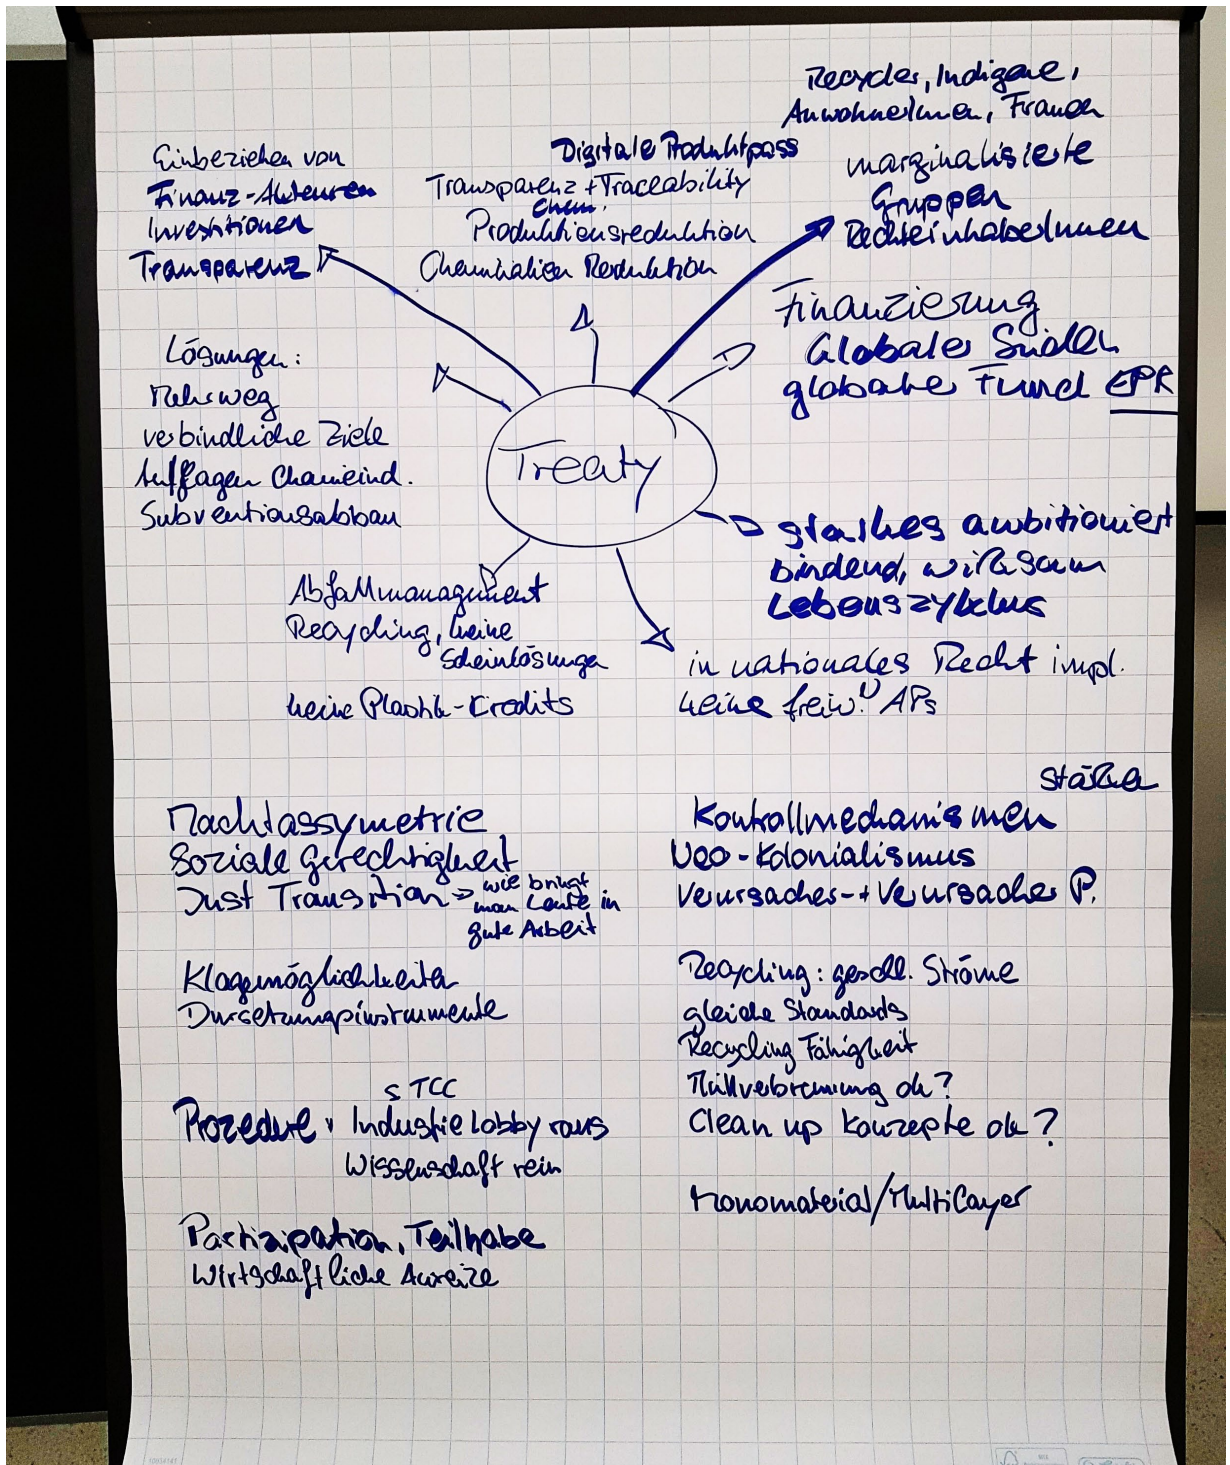 Recycler, Indigene,
AnwohnerInnen, Frauen
marginalisierte
Gruppen
RechteinhaberInnen
Einbeziehen von
Finanz-Akteuren
Investitionen
Transparenz
Digitale Produktpass
Transparenz + Traceability
Chem.
Produktionsreduktion
Chemikalien Reduktion
Finanzierung
Globaler Süden
globaler Fund EPR
Lösungen:
Mehrweg
verbindliche Ziele
Auflagen Chemieind.
Subventionsabbau
Treaty
starkes ambitioniert
bindend, wirksam
Lebenszyklus
Abfallmanagement
Recycling, keine
Scheinlösungen
keine Plastik-Credits
in nationales Recht impl.
keine freiw. APs
Machtassymetrie
Soziale Gerechtigkeit
Just Transition → wie bringt
man Leute in
gute Arbeit
Klagemöglichkeiten
Dursetzungsinstrumente
STCC
Prozedure: Industrielobby raus
Wissenschaft rein
Partizipation, Teilhabe
Wirtschaftliche Anreize
stärken
Kontrollmechanismen
Neo-Kolonialismus
Verursacher-+ Verursacher P.
Recycling: geschl. Ströme
gleiche Standards
Recycling Fähigkeit
Müllverbrennung ok?
Clean up Konzepte ok?
Monomaterial/Multilayer